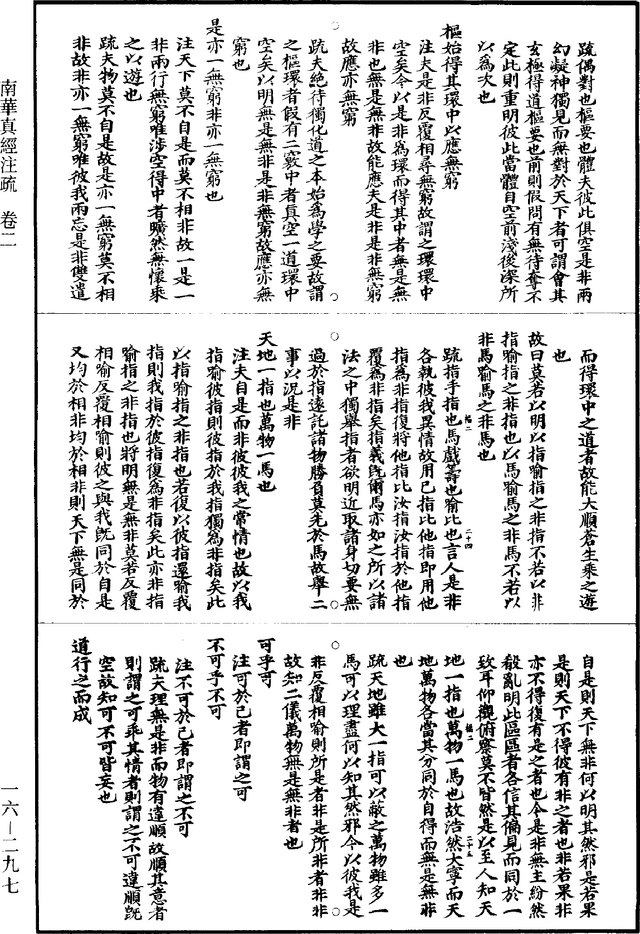 疏偶對也樞要也體夫彼此俱空是非兩
幻凝神獨見而無對於天下者可謂會其
玄極得道樞要也前則假問有無待奪不
定此則重明彼此當體自空前淺後深所
以為次也
樞始得其環中以應無窮
注夫是非反覆相尋無窮故謂之環環中
空矣今以是非為環而得其中者無是無
非也無是無非故能應夫是非是非無窮
故應亦無窮
疏夫絕待獨化道之本始為學之要故謂
之樞環者假有二竅中者真空一道環中
空矣以明無是無非是非無窮故應亦無
窮也
是亦一無窮非亦一無窮也
注天下莫不自是而莫不相非故一是一
非兩行無窮唯涉空得中者曠然無懷乘
之以遊也
疏夫物莫不自是故是亦一無窮莫不相
非故非亦一無窮唯彼我兩忘是非雙遣
而得環中之道者故能大順蒼生乘之遊
也
故曰莫若以明以指喻指之非指不若以非
指喻指之非指也以馬喻馬之非馬不若以
非馬喻馬之非馬也
疏指手指也馬戲籌也喻比也言人是非
各執彼我異情故用己指比他指即用他
指為非指復將他指比汝指汝指於他指
覆為非指矣指義既爾馬亦如之所以諸
法之中獨舉指者欲明近取諸身切要無
過於指遠託諸物勝負莫先於馬故舉二
事以況是非
天地一指也萬物一馬也
注夫自是而非彼彼我之常情也故以我
指喻彼指則彼指於我指獨為非指矣此
以指喻指之非指也若復以彼指還喻我
指則我指於彼指復為非指矣此亦非指
喻指之非指也將明無是無非莫若反覆
相喻反覆相喻則彼之與我既同於自是
又均於相非均於相非則天下無是同於
自是則天下無非何以明其然邪是若果
是則天下不得彼有非之者也非若果非
亦不得復有是之者也今是非無主紛然
殽亂明此區區者各信其偏見而同於一
致耳仰觀俯察莫不皆然是以至人知天
地一指也萬物一馬也故浩然大寧而天
地萬物各當其分同於自得而無是無非
也
疏天地雖大一指可以蔽之萬物雖多一
馬可以理盡何以知其然邪今以彼我是
非反覆相喻則所是者非是所非者非非
故知二儀萬物無是無非者也
可乎可
注可於己者即謂之可
不可乎不可
注不可於己者即謂之不可
疏夫理無是非而物有違順故順其意者
則謂之可乖其情者則謂之不可違順既
空故知可不可皆妄也
道行之而成
南華真經注疏 卷二
一六—二九七